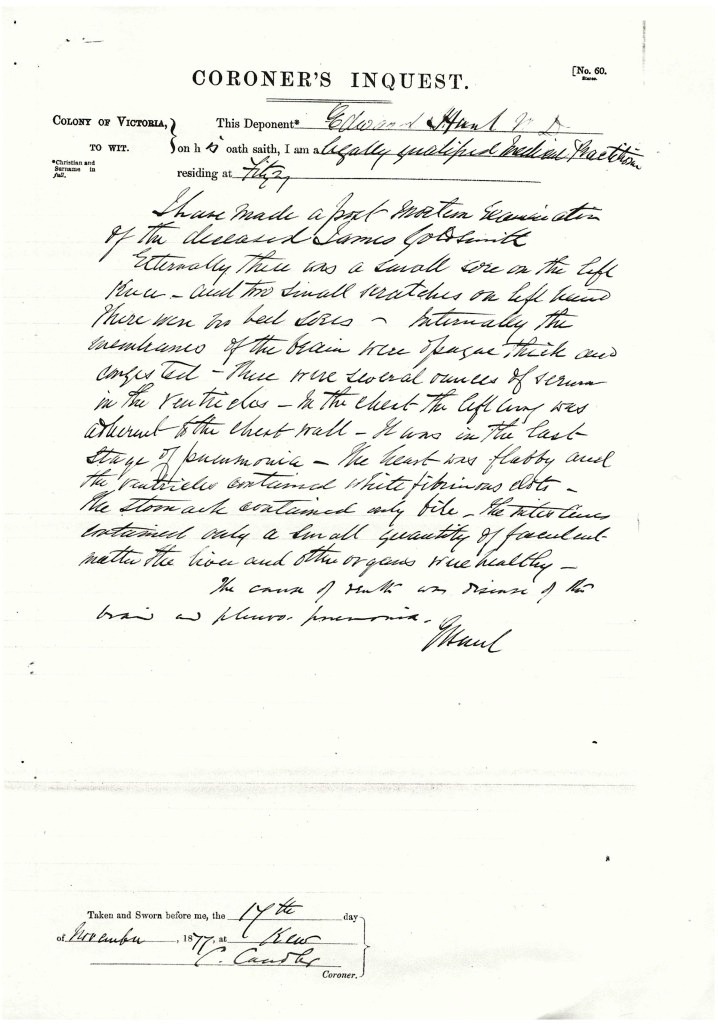 [No. 60.
CORONER'S INQUEST.
COLONY OF VICTORIA, This Deponent* Edward Hunt M D
TO WIT. on his oath saith, I am a legally qualified Medical Practitioner
*Christian and Surname in full. residing at Fitzy
I have made a post mortem examination
of the deceased James Goldsmith
Externally there was a small sore on the left
Knee – and two small scratches on left hand
There were no bed sores – Internally the
membranes of the brain were opaque thick and
congested – There were several ounces of serum
in the ventricles – In the chest the left lung was
adherent to the chest wall – It was in the last
stage of pneumonia – The heart was flabby and
the ventricles contained white fibrinous clots –
The stomach contained only bile – The intestines
contained only a small quantity of faeculent
matter the liver and other organs were healthy –
The cause of death was disease of the
brain and pleuro-pneumonia.
EHunt
Taken and Sworn before me, the 17th day
of November, 1877, at Kew
C. Candler
Coroner.